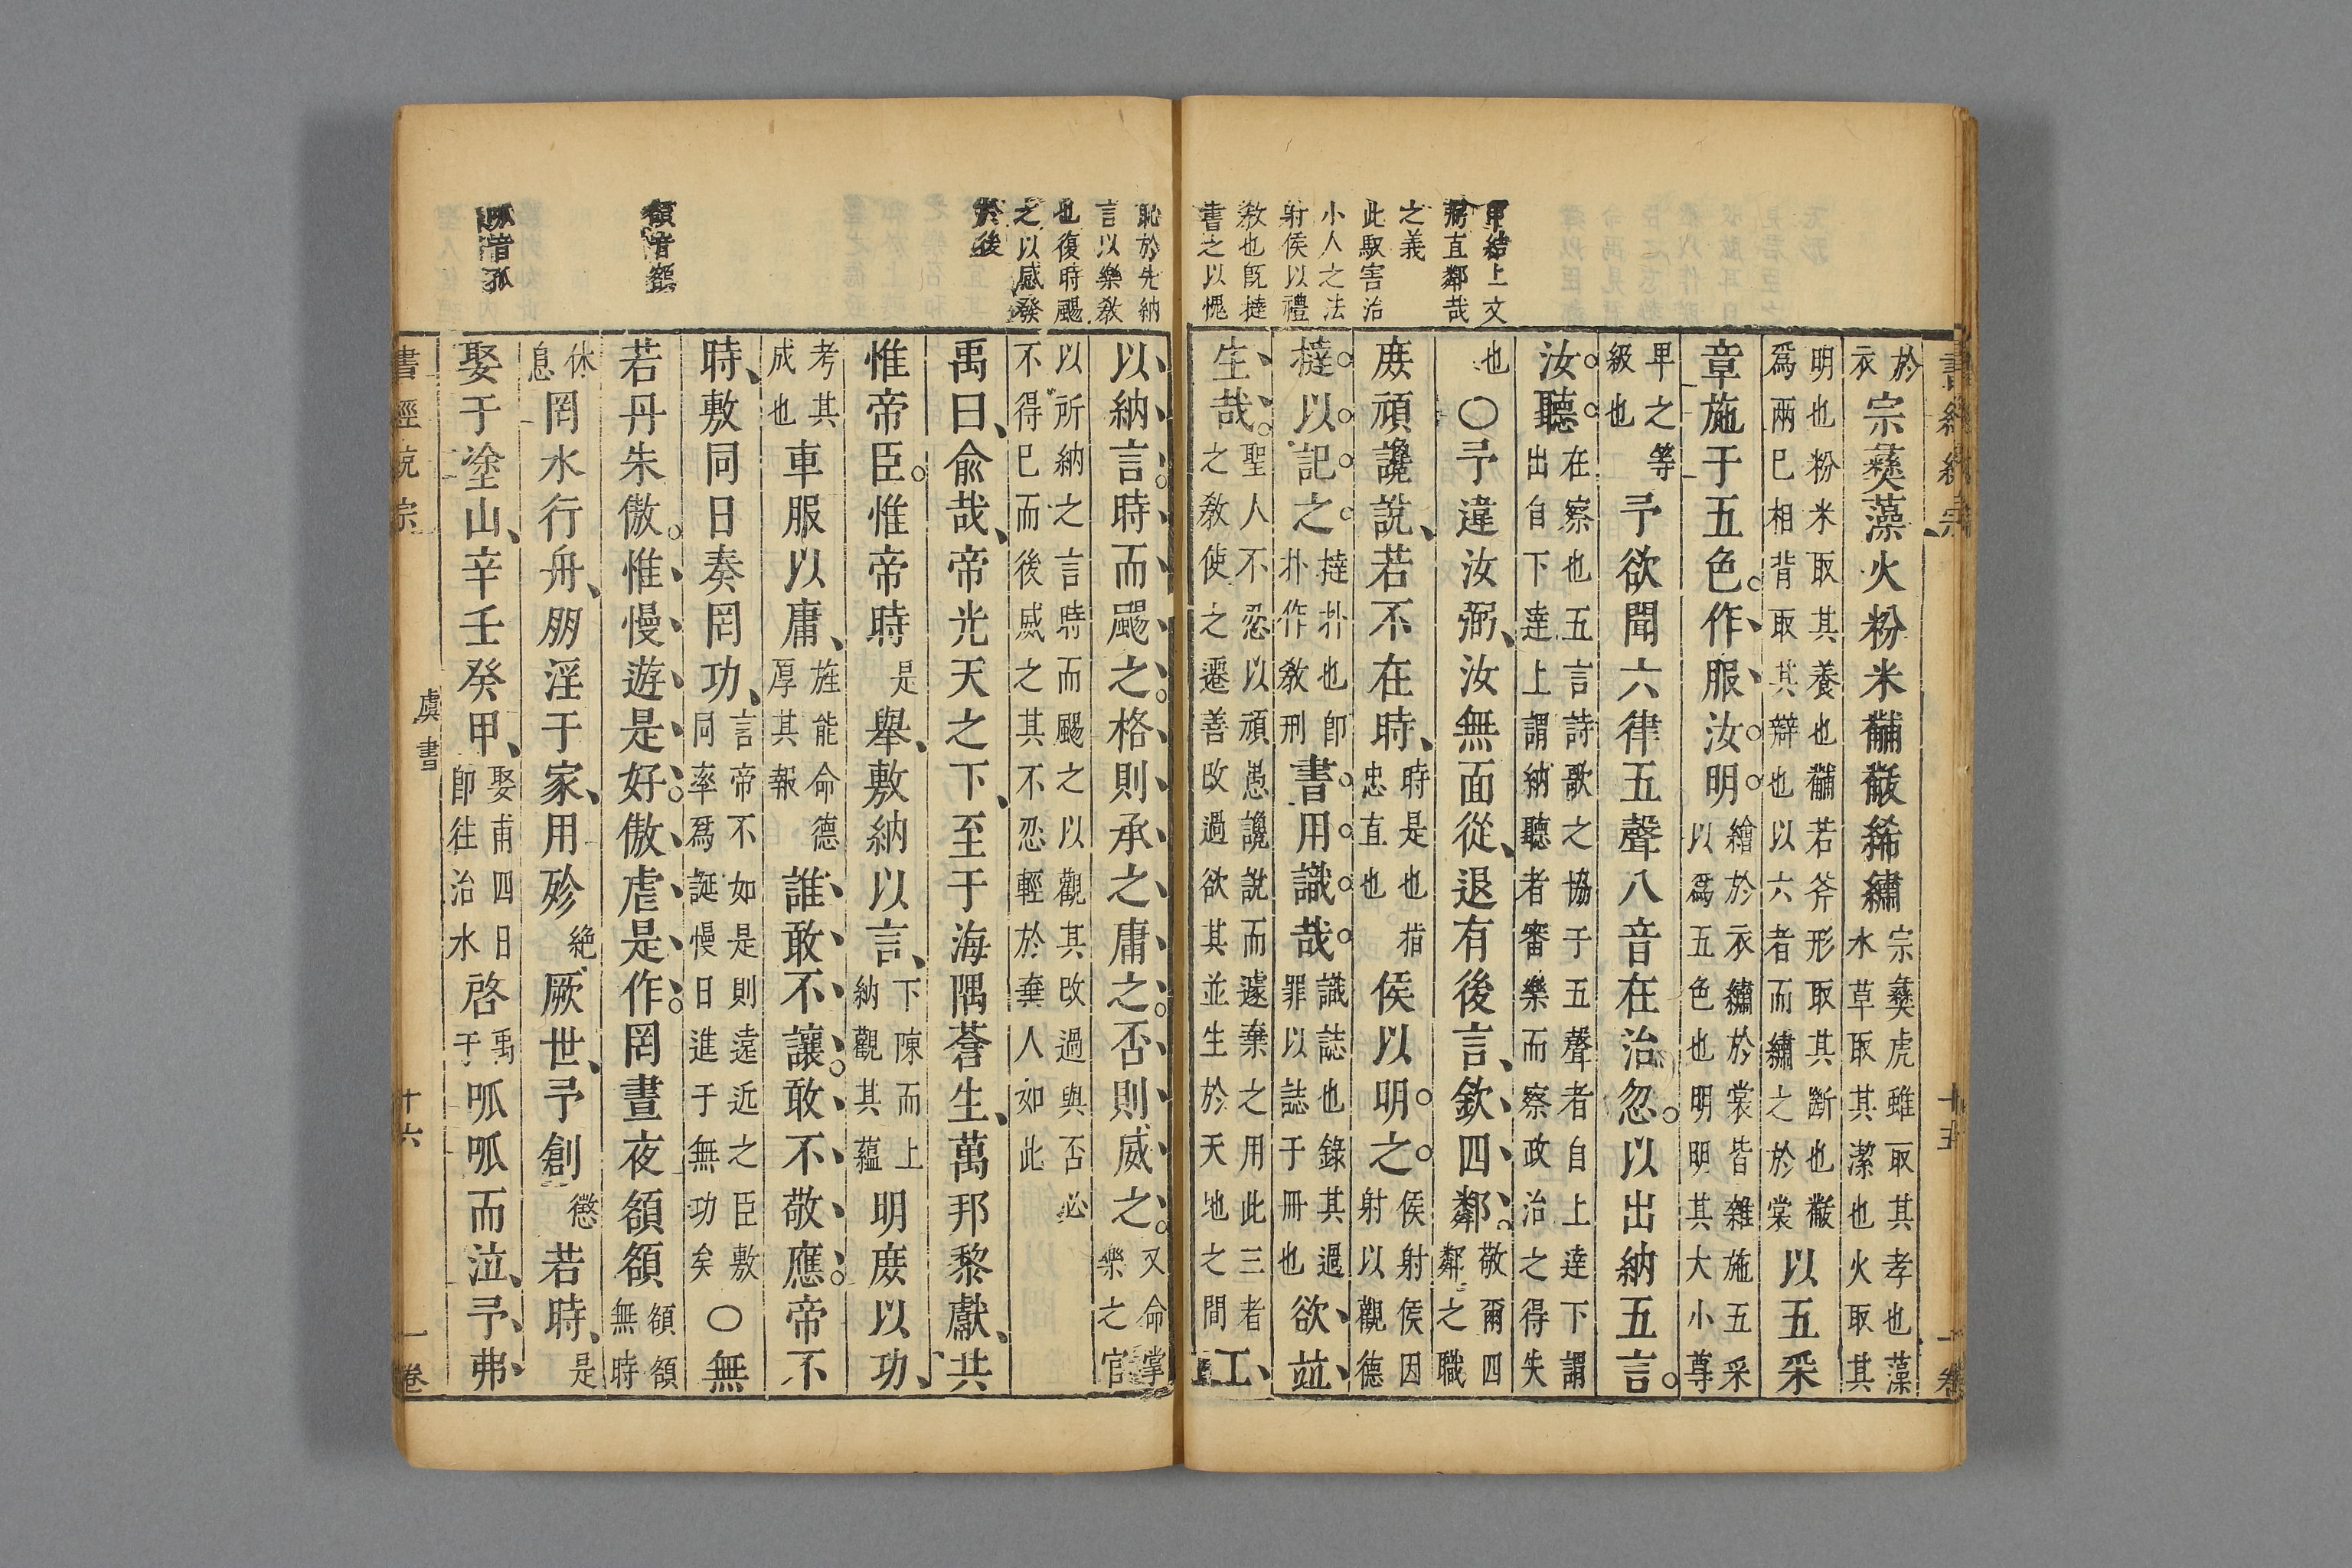 甲結上文
弼直鄰哉
之義
此馭害治
小人之法
射侯以禮
教也旣撻
書之以愧
於衣宗彝藻火粉米黼黻絺繡宗彝虎蜼取其孝也藻水草取其潔也火取其
明也粉米取其養也黼若斧形取其斷也黻爲兩巳相背取其辯也以六者而繡之於裳以五采
章施于五色作服汝明繪於衣繡於裳皆雜施五采以爲五色也明明其大小尊
卑之等級也予欲聞六律五聲八音在治忽以出納五言
汝聽在察也五言詩歌之協于五聲者自上達下謂出自下達上謂納聽者審樂而察政治之得失
也○予違汝弼汝無面從退有後言欽四鄰敬爾四鄰之職
庻頑讒說若不在時時是也指忠直也侯以明之侯射侯因射以觀德
撻以記之撻扑也卽扑作敎刑書用識哉識誌也錄其過罪以誌于冊也欲竝
生哉聖人不忍以頑愚讒說而遽棄之用此三者之敎使之遷善改過欲其並生於天地之間工
書經統宗
十五
一卷
恥於先納
言以樂敎
也復時颺
之以感發
於後
頟音額
呱音孤
以納言時而颺之格則承之庸之否則威之又命掌樂之官
以所納之言時而颺之以觀其改過與否必不得已而後威之其不忍輕於棄人如此
禹曰俞哉帝光天之下至于海隅蒼生萬邦黎獻共
惟帝臣惟帝時是舉敷納以言下陳而上納觀其蘊明庻以功
考其成也車服以庸旌能命德厚其報誰敢不讓敢不敬應帝不
時敷同日奏罔功言帝不如是則遠近之臣敷同率爲誕慢日進于無功矣○無
若丹朱傲惟慢遊是好傲虐是作罔晝夜頟頟頟頟無時
休息罔水行舟朋淫于家用殄絕厥世予創懲若時是
娶于塗山辛壬癸甲娶甫四日卽往治水啓禹子呱呱而泣予弗
書經統宗
虞書
十六
一卷